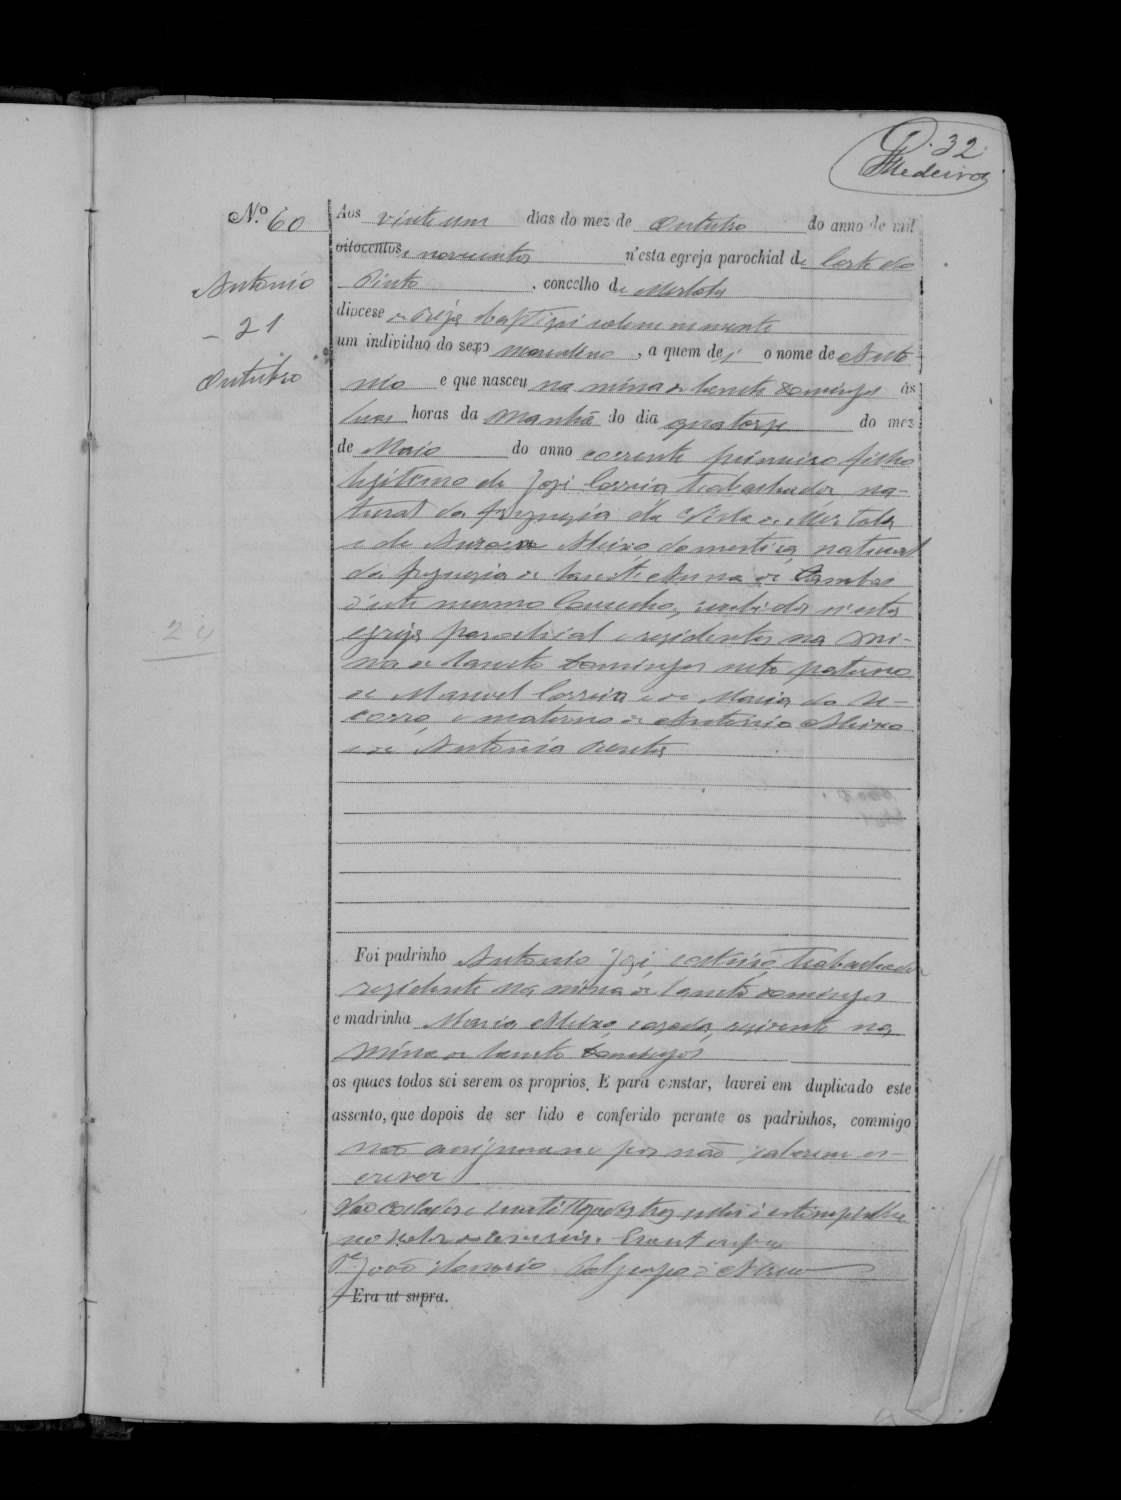 32
Medeiros
N.º 60
Antonio
21
Outubro
24
Aos vinte um dias do mez de Outubro do anno de mil
oitocentos, novecentos n'esta egreja parochial de Corte do
Pinto, concelho de Mertola
diocese de Beja baptizei solemnemente
um individuo do sexo masculino, a quem dei o nome de Anto
nio e que nasceu na mina de Sancto Domingos ás
duas horas da manhã do dia quatorze do mez
de Maio do anno corrente primeiro filho
legitimo de José Correia, trabalhador na-
tural da freguezia da Villa de Mertola
e de Aurora Aleixo, domestica, natural
da freguezia de Sancta Anna de Cambas
d'este mesmo Concelho, recebidos n'esta
egreja parochial e residentes na mi-
na de Sancto Domingos neto paterno
de Manuel Correia e de Maria do So-
corro, e materno de Antonio Aleixo
e de Antonia Bento
Foi padrinho Antonio José, solteiro, trabalhador
residente na mina de Sancto Domingos
e madrinha Maria Aleixo, casada, residente na
Mina de Sancto Domingos
os quaes todos sei serem os proprios. E para constar, lavrei em duplicado este
assento, que depois de ser lido e conferido perante os padrinhos, commigo
não assignaram por não saberem es-
crever
no valor de cem reis. Era ut supra
P.e João
Era ut supra.